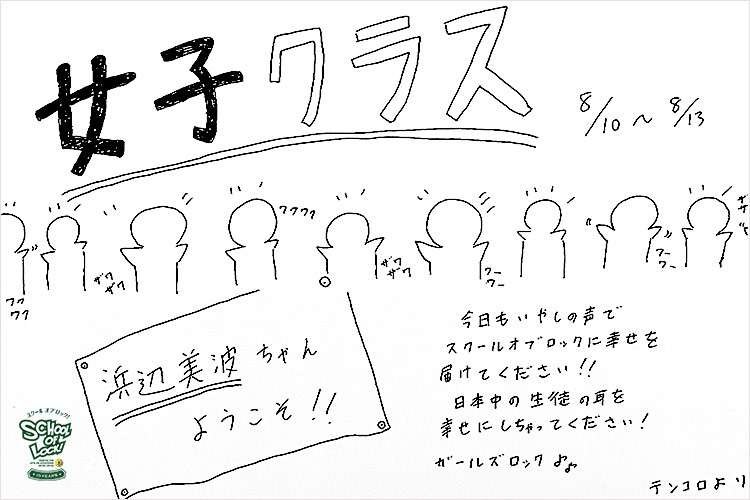 女子クラス
8/10〜8/13
ワクワク
ザワザワ
ワーワー
ザワザワ
ワクワク
浜辺美波ちゃん
ようこそ!!
今日もいやしの声で
スクールオブロックに幸せを
届けてください!!
日本中の生徒の耳を
幸せにしちゃってください!
ガールズロック♪♪
テンコロより
スクールオブロック!
SCHOOL
OF
LOCK!